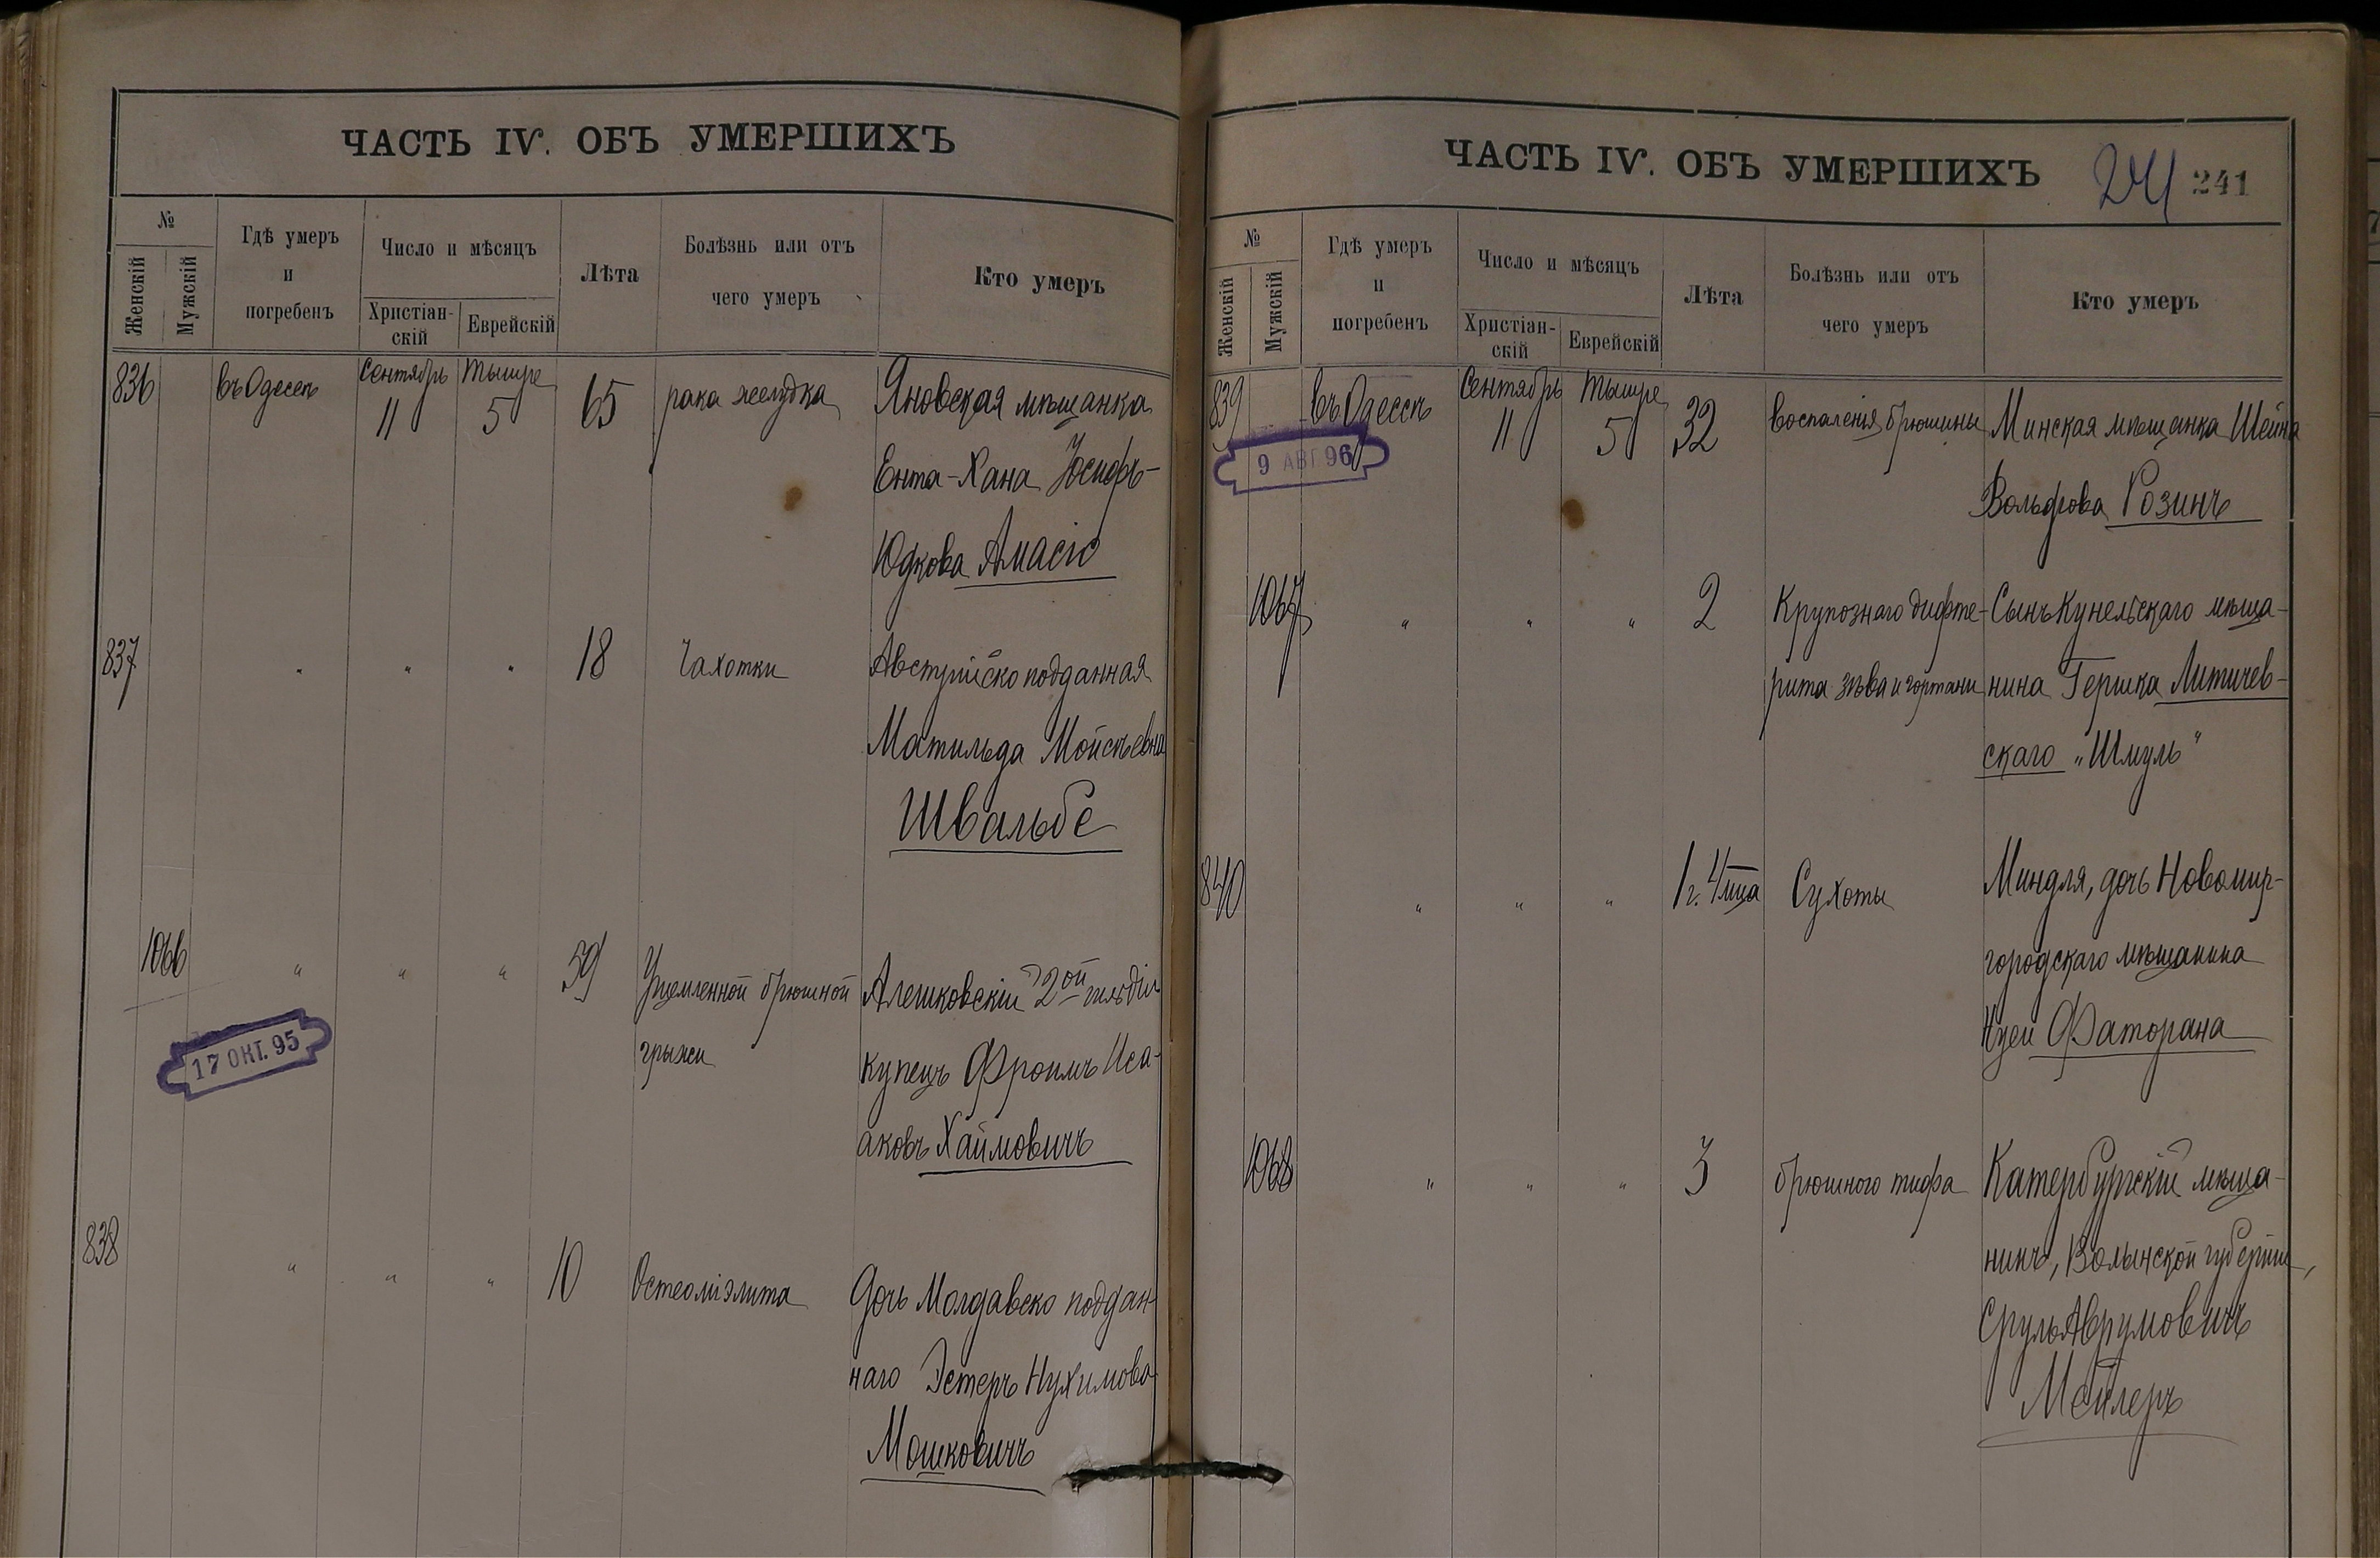 ЧАСТЬ IV. ОБЪ УМЕРШИХЪ
№
Женскій
Мужскій
Гдѣ умеръ
и
погребенъ
Число и мѣсяцъ
Христіан-
скій
Еврейскій
Лѣта
Болѣзнь или отъ
чего умеръ
Кто умеръ
836
въ Одессѣ
Сентябрь
11
Тышре
5
65
рака желудка
Яновская мѣщанка
Ента-Хана Іосифъ-
Юдкова Амасіс
837
"
"
"
18
Чахотки
Австрійско подданная
Матильда Мойсѣевна
Швальбе
1066
"
"
"
59
Ущемленной брюшной
грыжи
Алешковскій 2ой гильдіи
купецъ Фроимъ Иса-
аковъ Хаймовичъ
17 ОКТ. 95
838
"
"
"
10
Остеоміэлита
Дочь Молдавско поддан-
наго Эстеръ Нухимова
Мошковичъ
ЧАСТЬ IV. ОБЪ УМЕРШИХЪ
241
241
№
Женскій
Мужскій
Гдѣ умеръ
и
погребенъ
Число и мѣсяцъ
Христіан-
скій
Еврейскій
Лѣта
Болѣзнь или отъ
чего умеръ
Кто умеръ
839
въ Одессѣ
Сентябрь
11
Тышре
5
32
воспаленія брюшины
Минская мѣщанка Шейна
Вольфова Розинъ
9 АВГ. 96
1067
"
"
"
2
Крупознаго дифте-
рита зѣва и гортани
Сынъ Кунельскаго мѣща-
нина Гершка Литичев-
скаго „Шмуль"
840
"
"
"
1 г. 4 мца
Сухоты
Миндля, дочь Новомир-
городскаго мѣщанина
Фаторана
1068
"
"
"
3
брюшного тифа
Катербургскій мѣща-
нинъ, Волынской губерніи,
Сруль Аврумовичъ
Мейлеръ